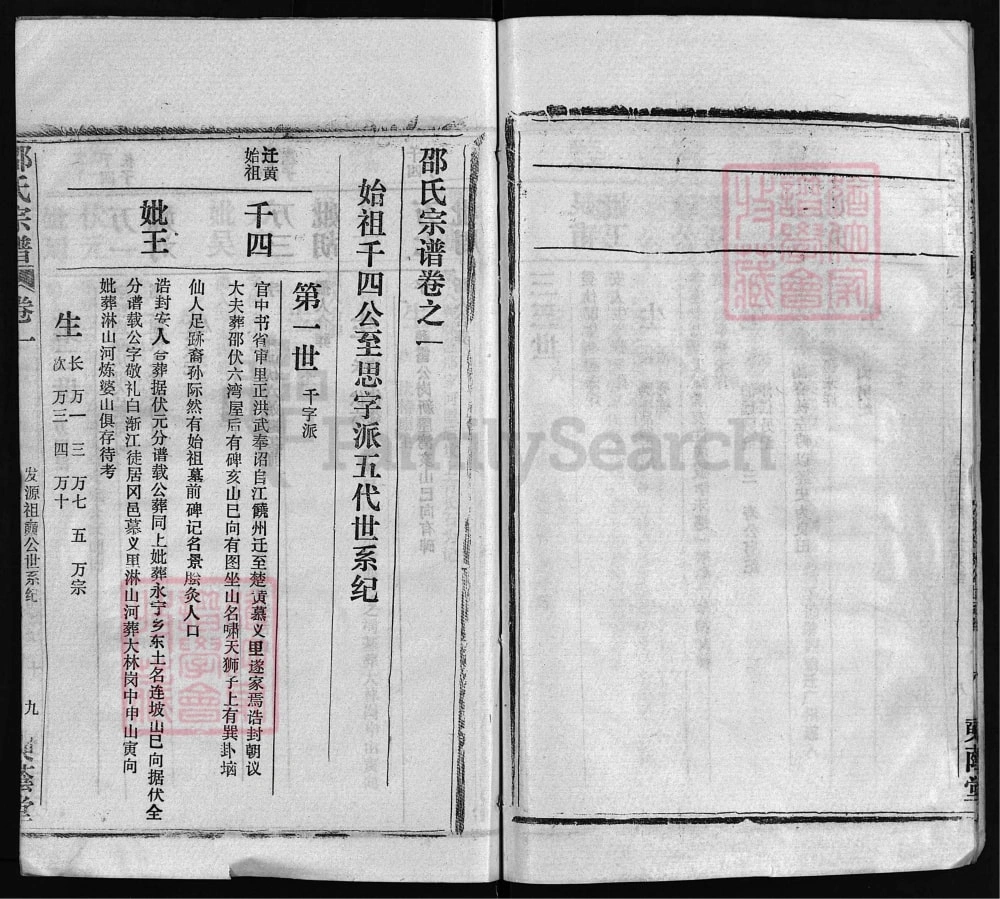 邵氏宗谱卷之一
始祖千四公至思字派五代世系纪
第一世 千字派
迁黄始祖
千四
官中书省审里正洪武奉诏自江饶州迁至楚黄慕义里遂家焉诰封朝议
大夫葬邵伏六湾屋后有碑亥山巳向有图坐山名啸天狮子上有巽卦垴
仙人足跡裔孙际然有始祖墓前碑记名景脍灸人口
妣王
诰封安人合葬据伏元分谱载公葬同上妣葬永宁乡东土名连坡山巳向据伏全
分谱载公字敬礼白渐江徒居冈邑慕义里淋山河葬大林岗中申山寅向
妣葬淋山河炼婆山俱存待考
生
长 万一 三 万七 五 万宗
次 万三 四 万十
邵氏宗谱 卷一
发源祖巅公世系纪
九